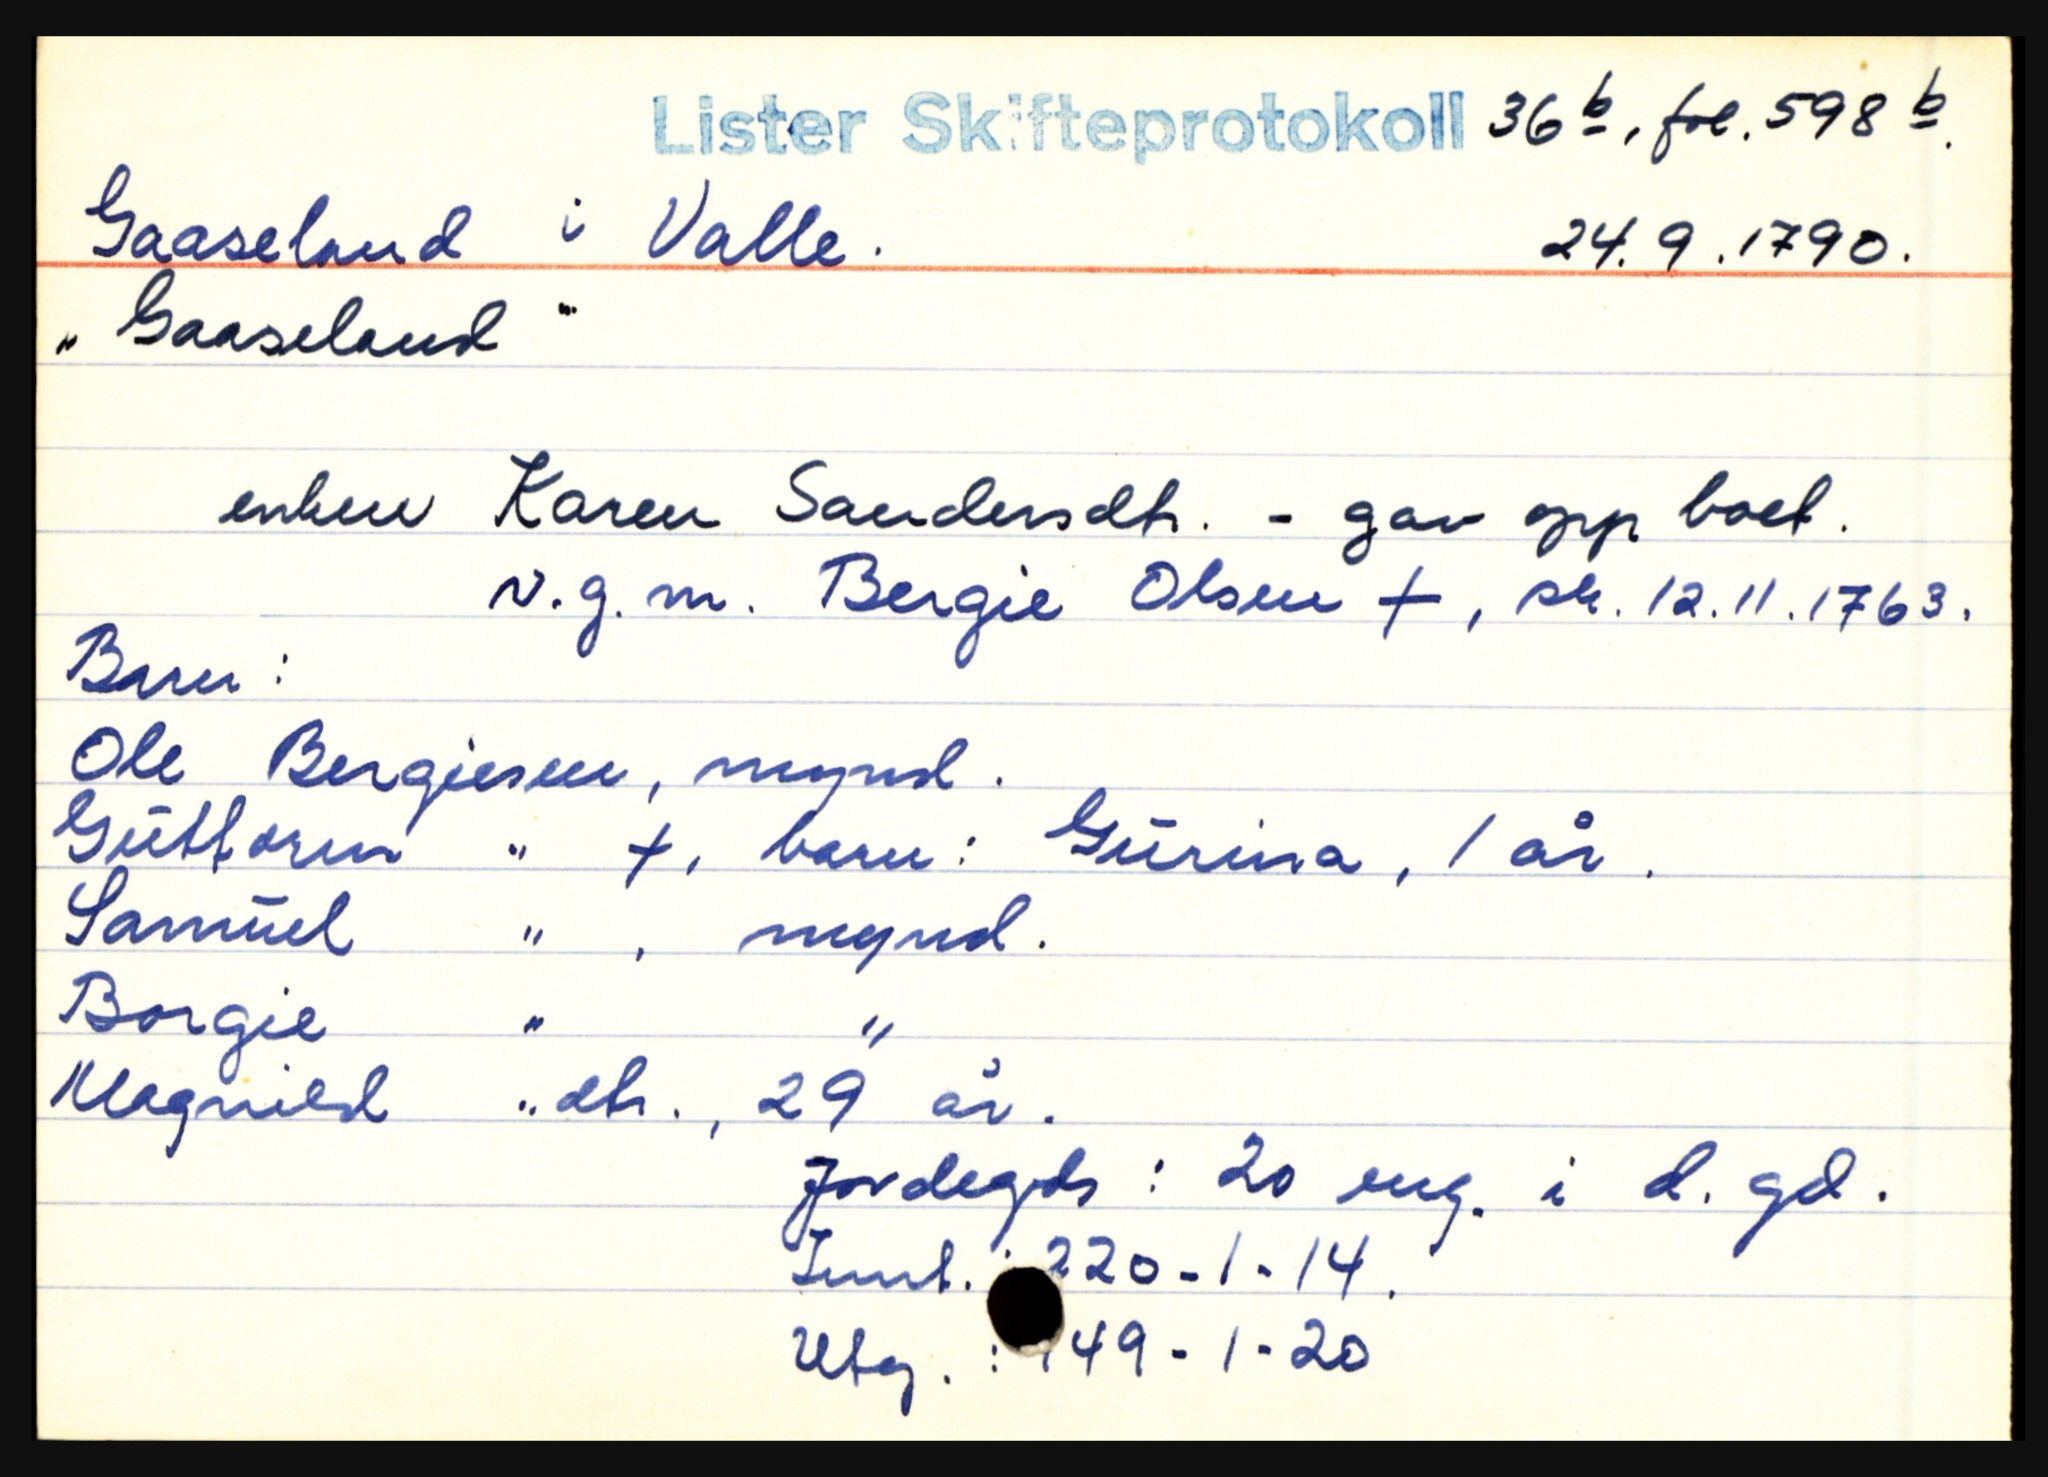 Lister Skifteprotokoll 36 b, fol. 598 b.
Gaaseland i Valle. 24.9.1790.
"Gaaseland"
enken Karen Sandersdtr. - gav opp boet.
v.g.m. Bergie Olsen +, sk. 12.11.1763.
Barn:
Ole Bergiesen, mynd.
Gūttorm " +, barn: Gūrina, 1 år.
Samūel " , mynd.
Borgie " "
Magnild " dtr., 29 år.
Jordegds: 20 eng. i d. gd.
Innt. : 220-1-14.
Utg. : 149-1-20